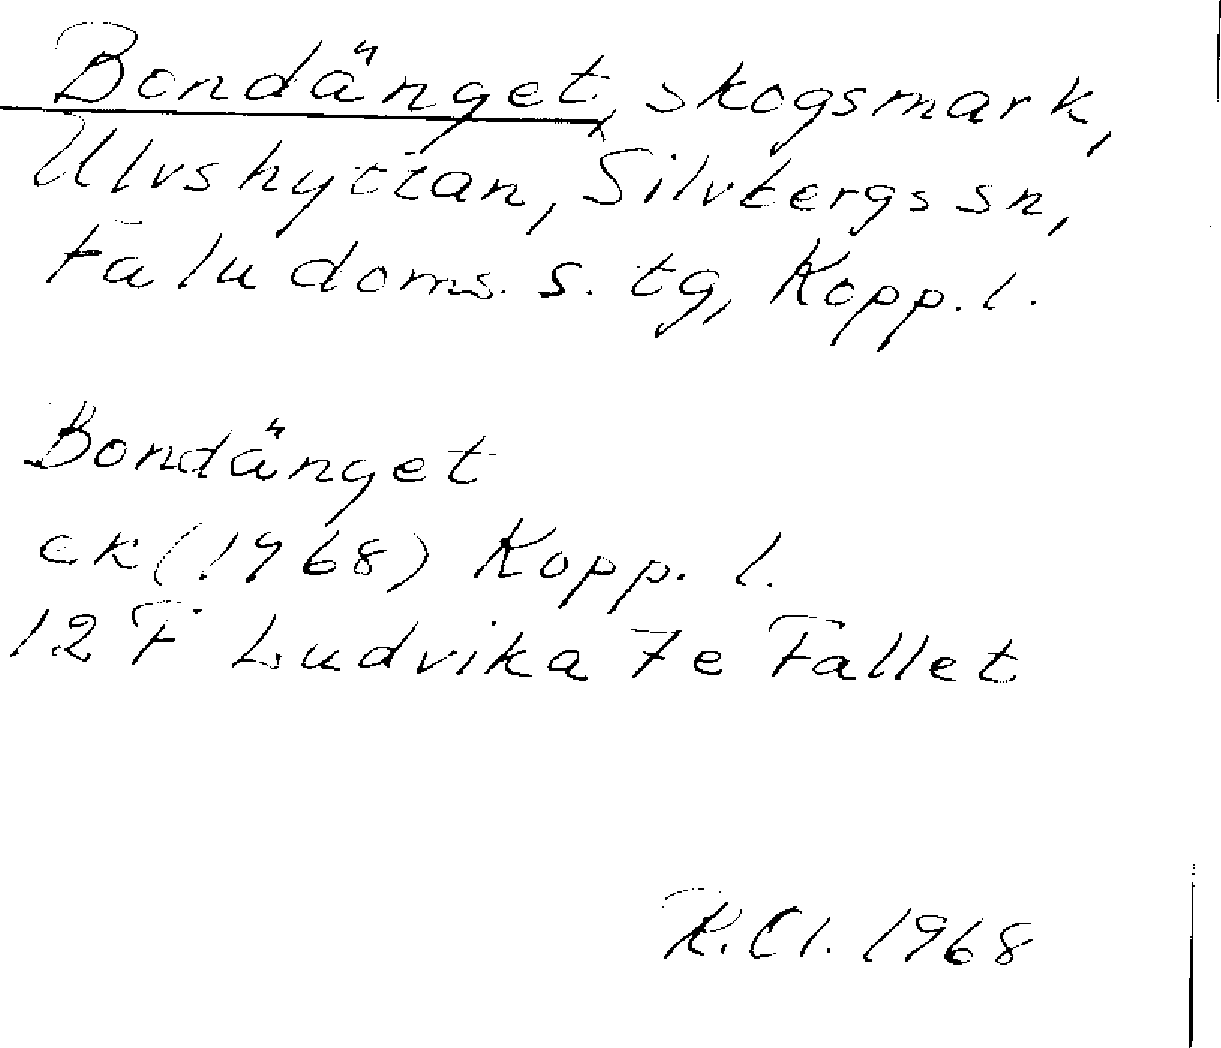 Bondänget, skogsmark,
Ulvshyttan, Silvbergs sn,
Falu doms. s. tg, Kopp. l.
Bondänget
ek (1968) Kopp. l.
12 F Ludvika 7e Fallet
K. Cl. 1968